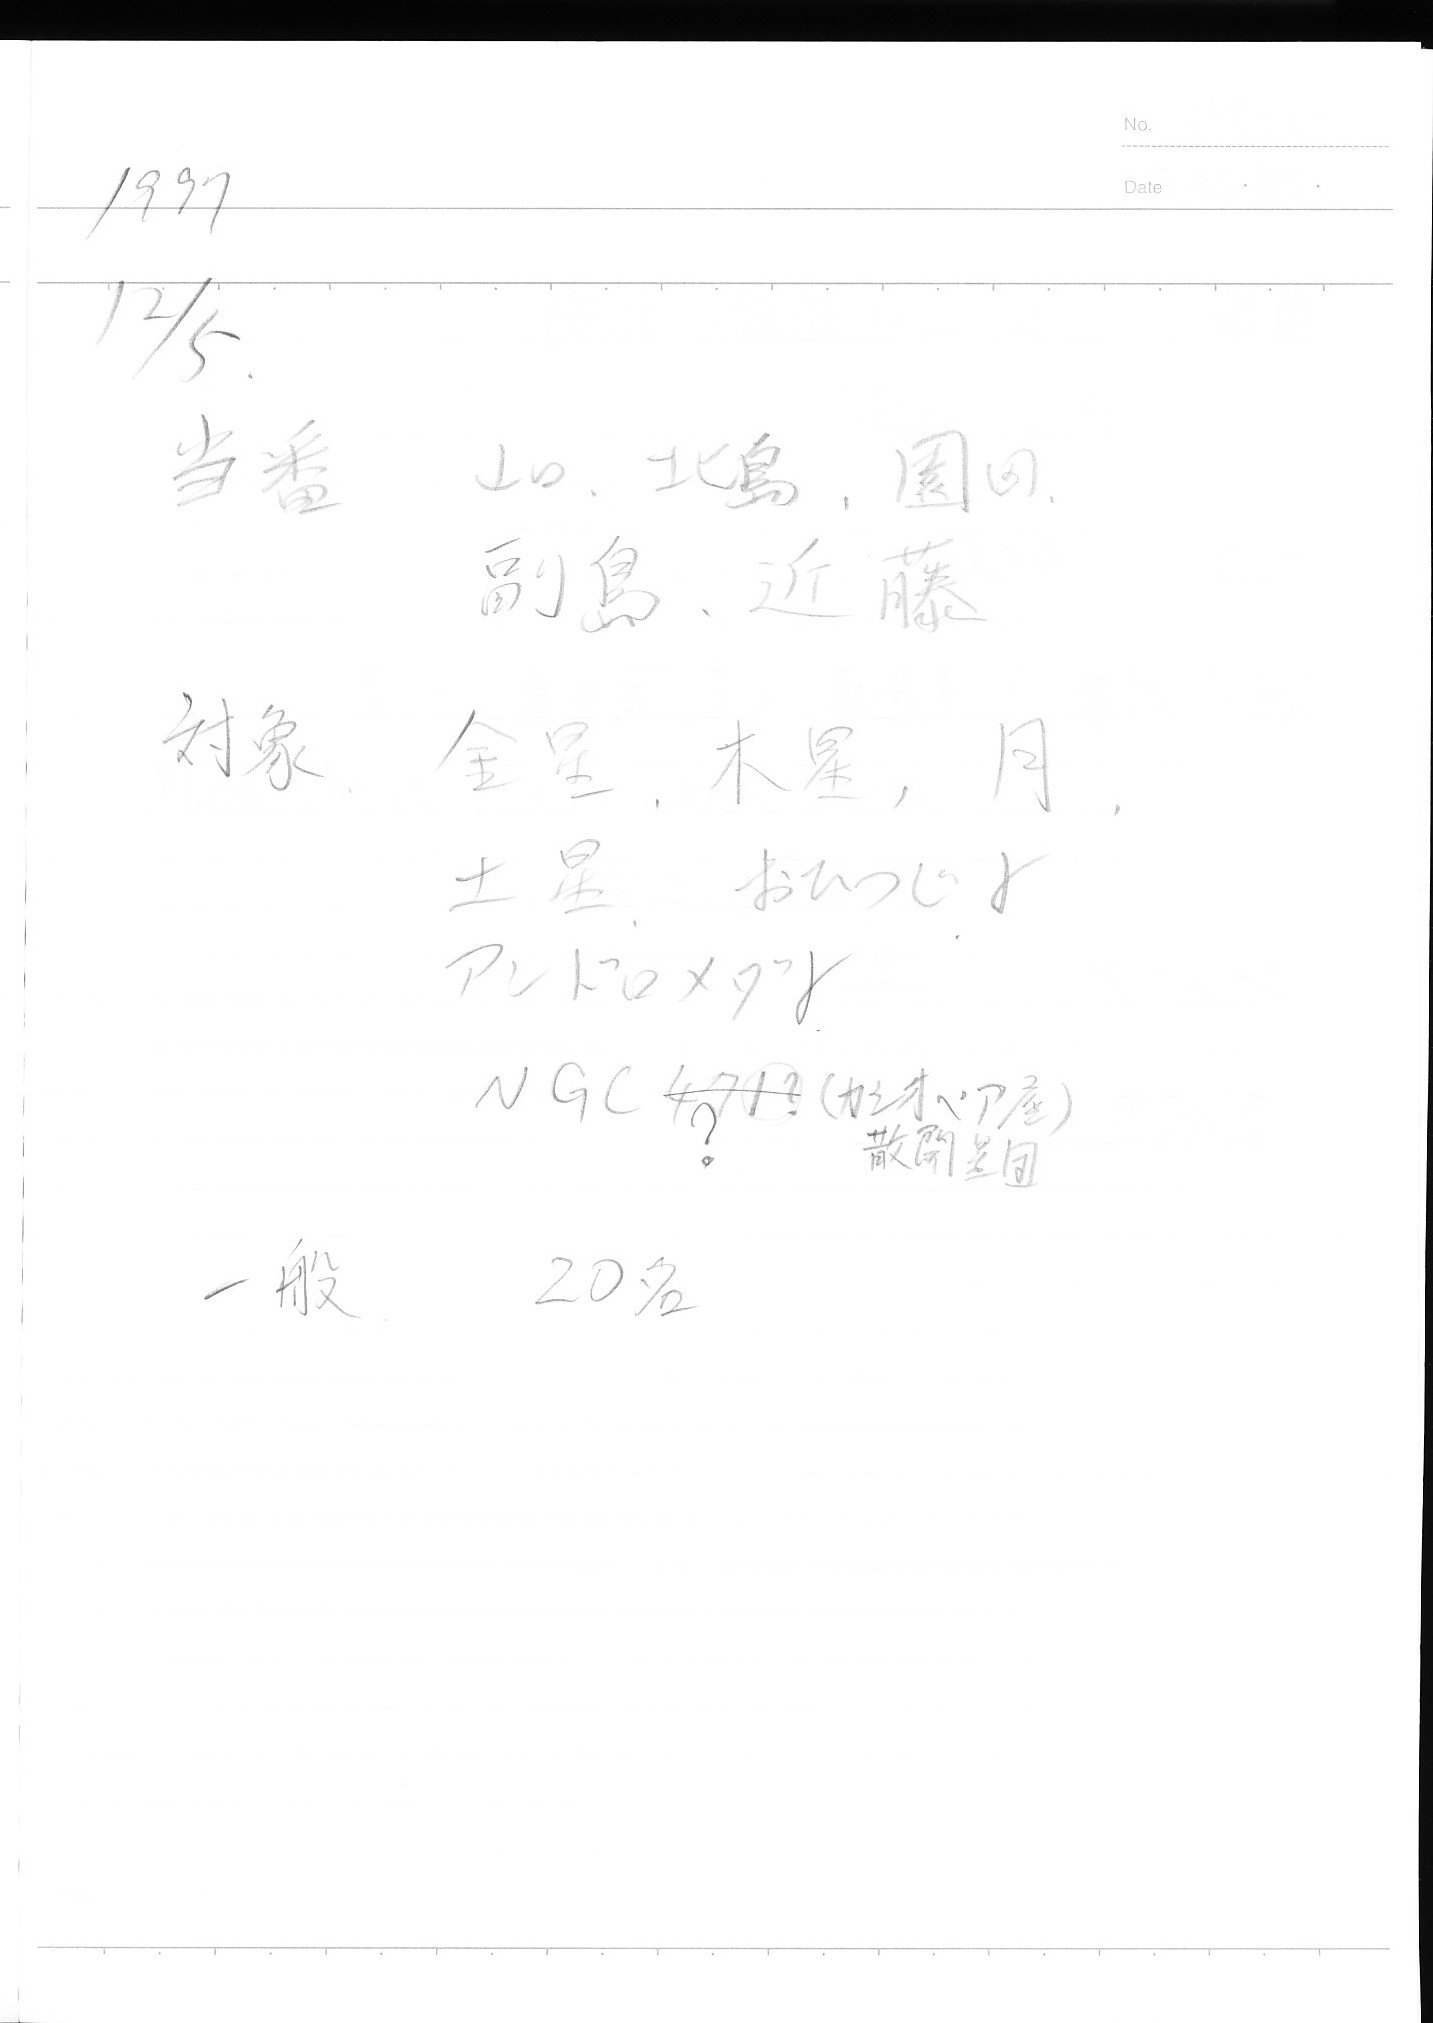 No.
Date
1997
12/5.
当番 山口、北島、園田、
副島、近藤
対象、金星、木星、月、
土星、おひつじγ
アンドロメダγ
NGC 471? (カシオペア座)
? 散開星団
一般、20名